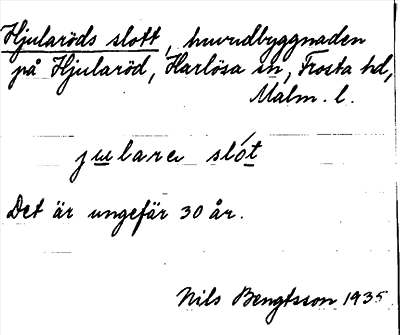 Hjularöds slott, huvudbyggnaden
på Hjularöd, Harlösa sn, Frosta hd,
Malm. l.
jularer slót
Det är ungefär 30 år.
Nils Bengtsson 1935